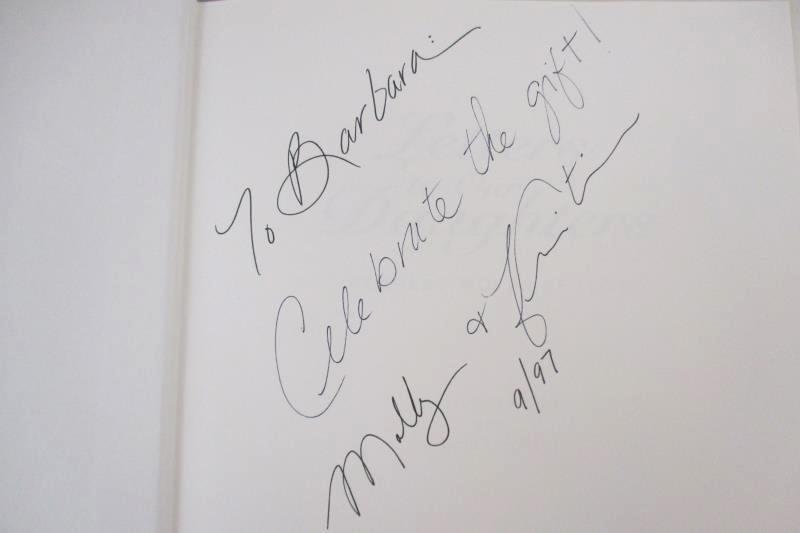 To Barbara:
Celebrate the gift!
Molly &
9/97
Letters
Daughters